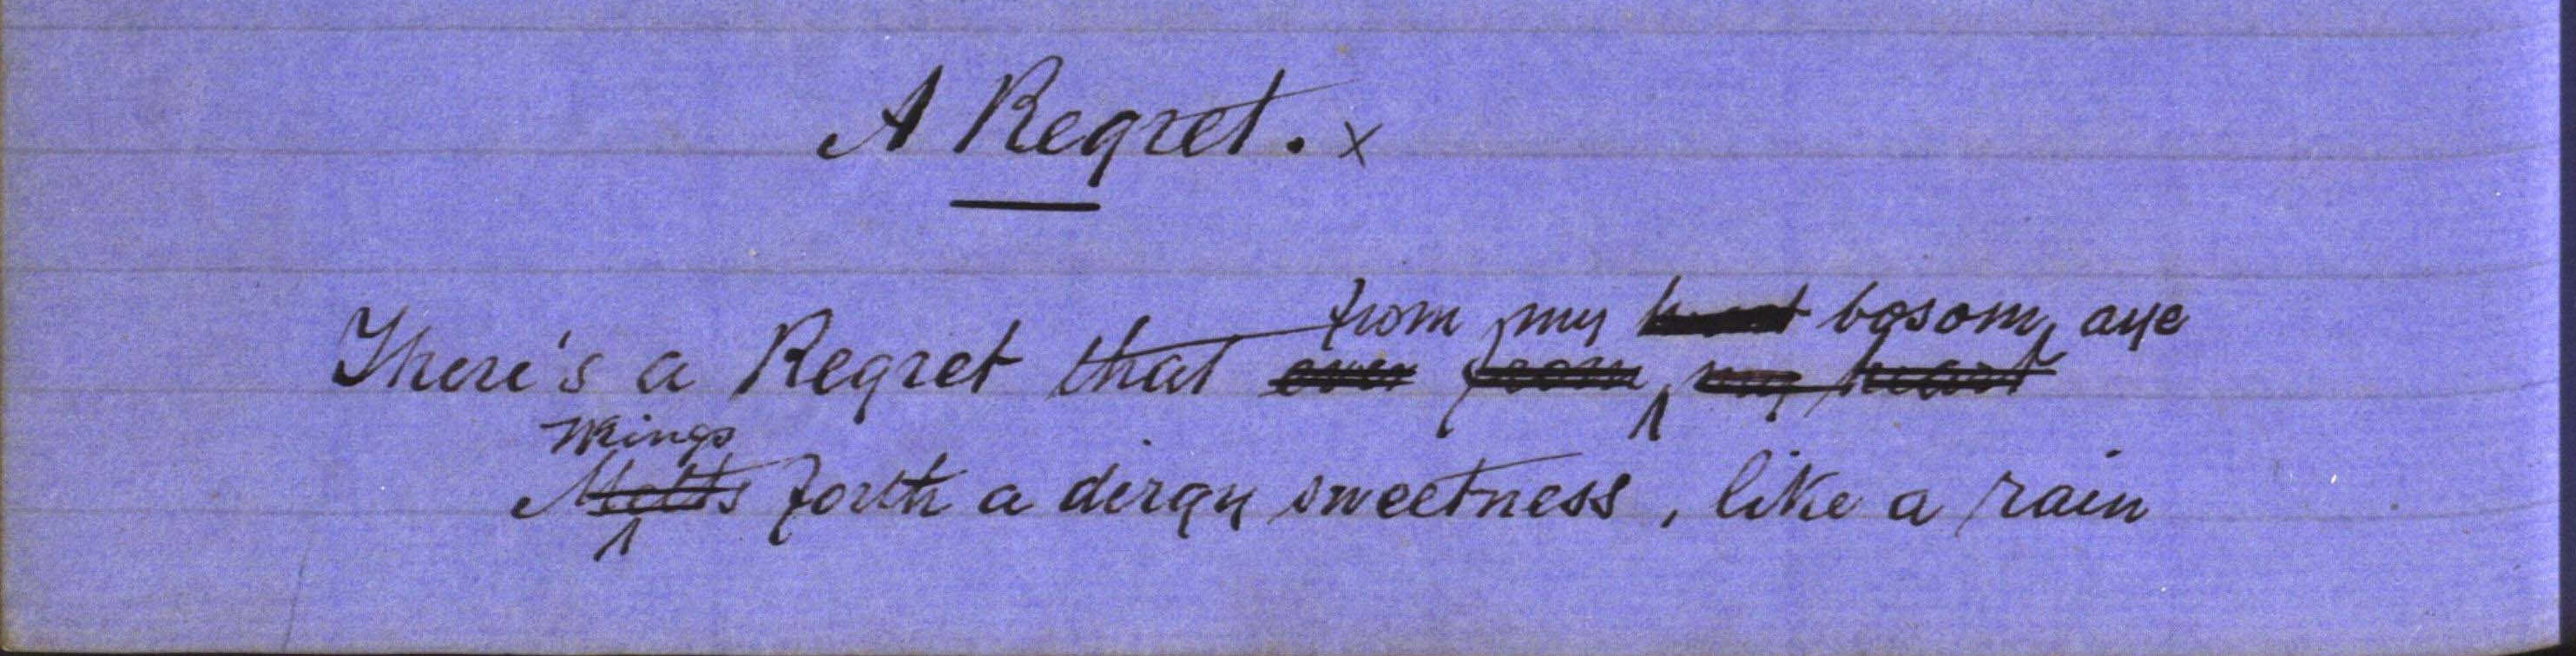 A Regret. x
from my heart bosom, aye
There's a Regret that ever from my heart
Wrings
Melts forth a dirgy sweetness, like a rain